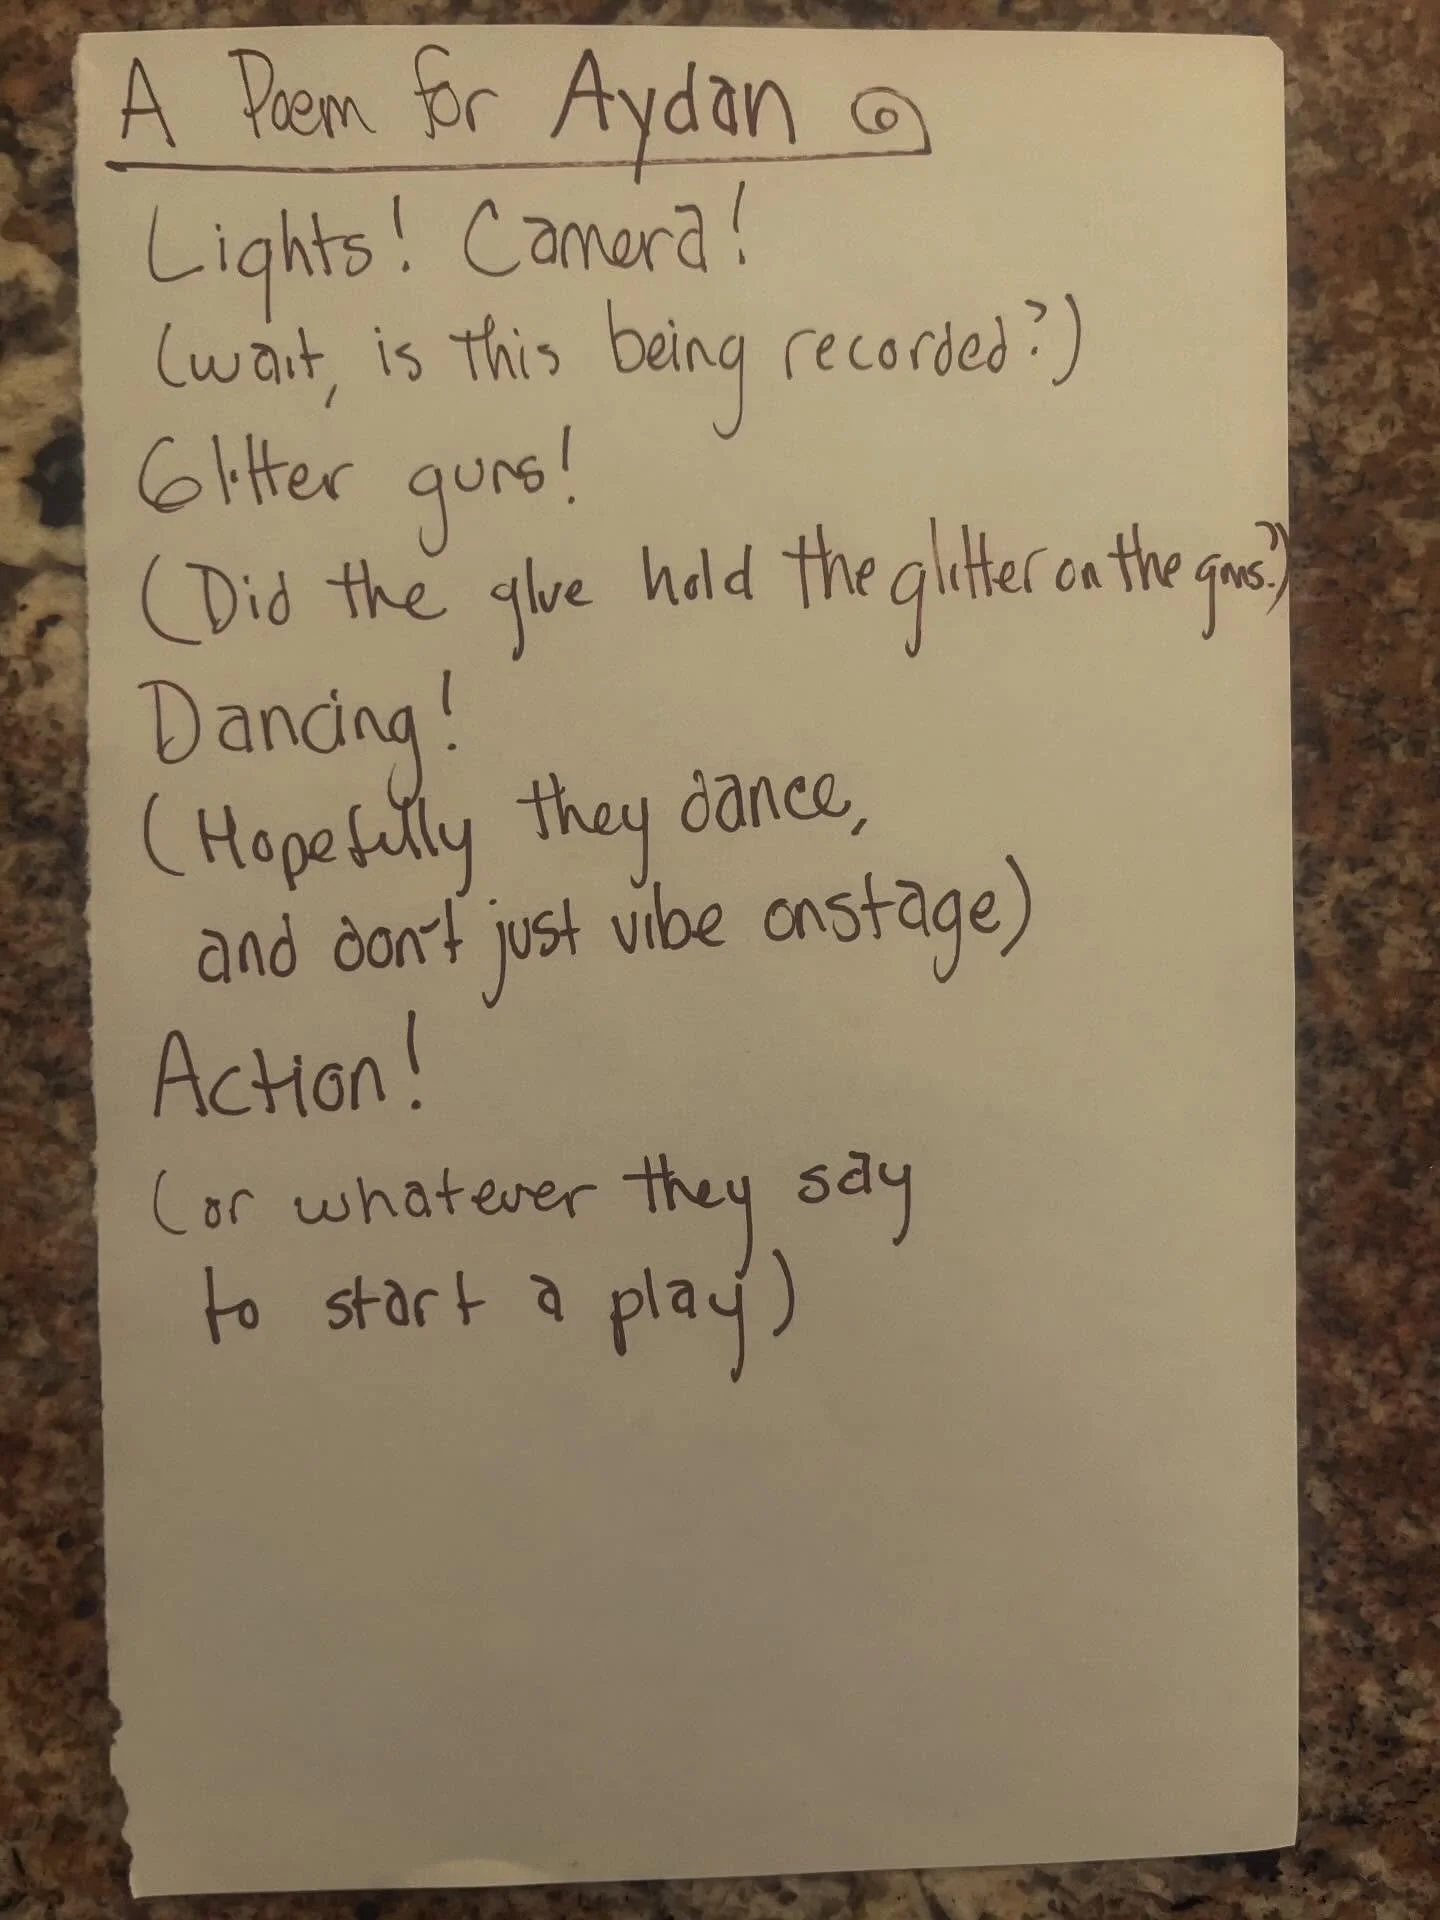 A Poem for Aydan
Lights! Camera!
(wait, is this being recorded?)
Glitter guns!
(Did the glue hold the glitter on the guns?)
Dancing!
(Hopefully they dance,
and don't just vibe onstage)
Action!
(or whatever they say
to start a play)